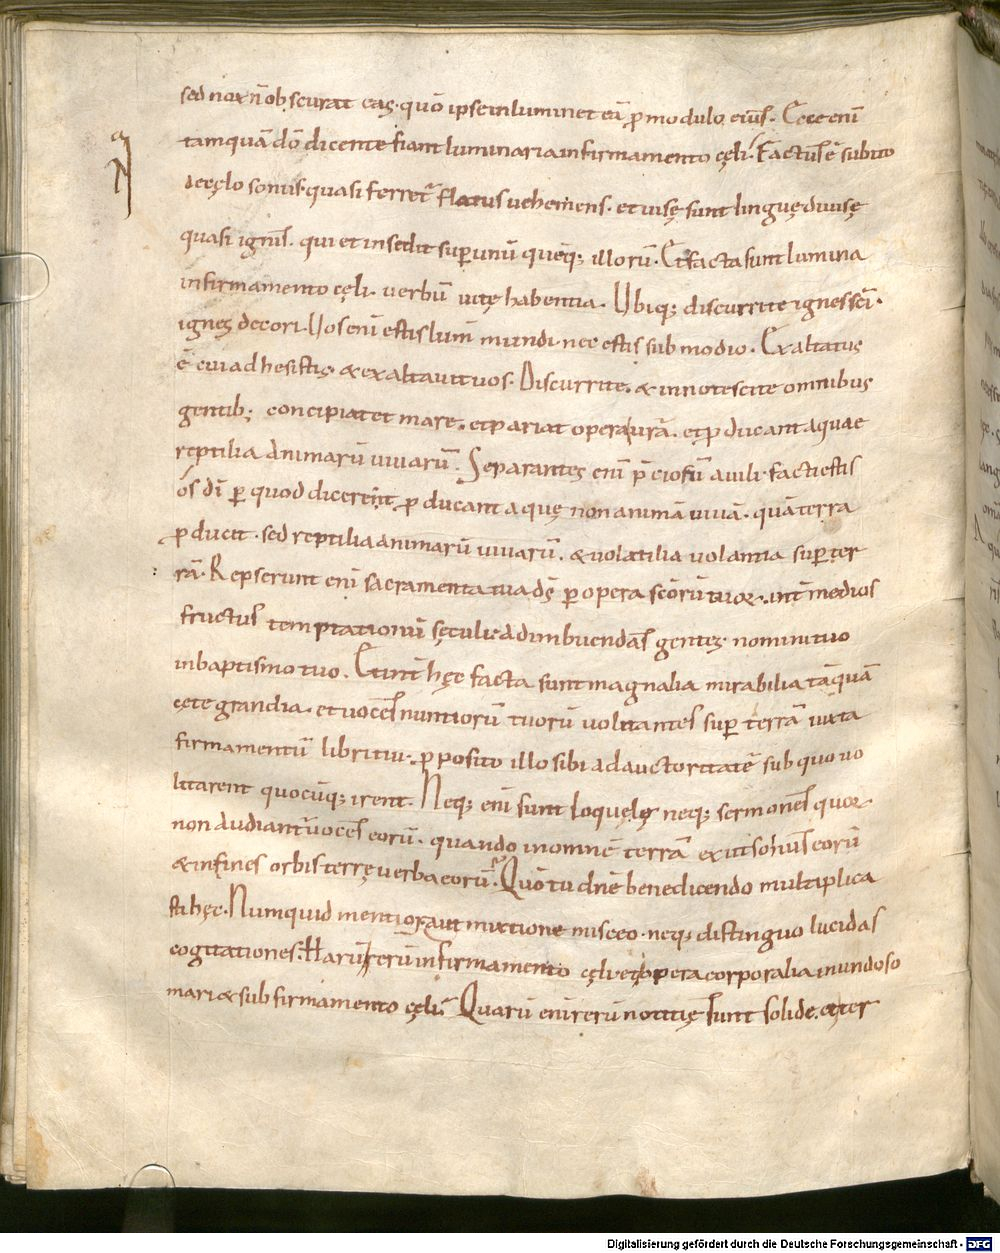 sed nox n̄ obscurat eas. quō ipse inluminet eā p̄ modulo eius. Ecce enī
tamquā dō dicente fiant luminaria in firmamento cęli. Factus ē subito
de cęlo sonus quasi ferret᷑ flatus uehemens. et uisę sunt linguę diuisę
quasi ignis. qui et insedit sup unū quēq; illorū. Et facta sunt lumina
in firmamento cęli. uerbū uitę habentia. Ubiq; discurrite ignes scī.
ignes decori. Uos enī estis lum̄ mundi. nec estis sub modio. Exaltatus
ē cui adhesistis. & exaltauit uos. Discurrite. & innotescite omnibus
gentib; concipiat et mare. et pariat opera urā. et ꝓducant aquae
reptilia animarū uiuarū. Separantes enī p̄ciosū a uili. facti estis
os dī ꝑ quod diceret ꝓducant aquę non animā uiuā. quā terra
ꝓducit. sed reptilia animarū uiuarū. & uolatilia uolantia suꝑ ter
rā. Repserunt enī sacramenta tua dš ꝑ opera scōrū tuoꝝ. int̄ medios
fluctus temptationū sęculi. ad imbuendas gentes nomini tuo
in baptismo tuo. Et int̄ hęc facta sunt magnalia mirabilia tāquā
cęte grandia. et uoces nuntiorū tuorū uolitantes suꝑ terrā iuxta
firmamentū libri tui. ꝓposito illo sibi ad auctoritatē sub quo uo
litarent quocūq; irent. Neq; enī sunt loquelę neq; sermones quoꝝ
non audiant᷑ uoces eorū. quando in omnē terrā exiit sonus eorū
& in fines orbis terrę uerba eorū. Quō tu dn̄e benedicendo multiplica
sti hęc. Numquid mentior aut mixtione misceo. neq; distinguo lucidas
cogitationes. Harū rerū in firmamento cęli. et opera corporalia in undoso
mari & sub firmamento cęli. Quarū enī rerū notitię sunt solide. et ter
Digitalisierung gefördert durch die Deutsche Forschungsgemeinschaft - DFG